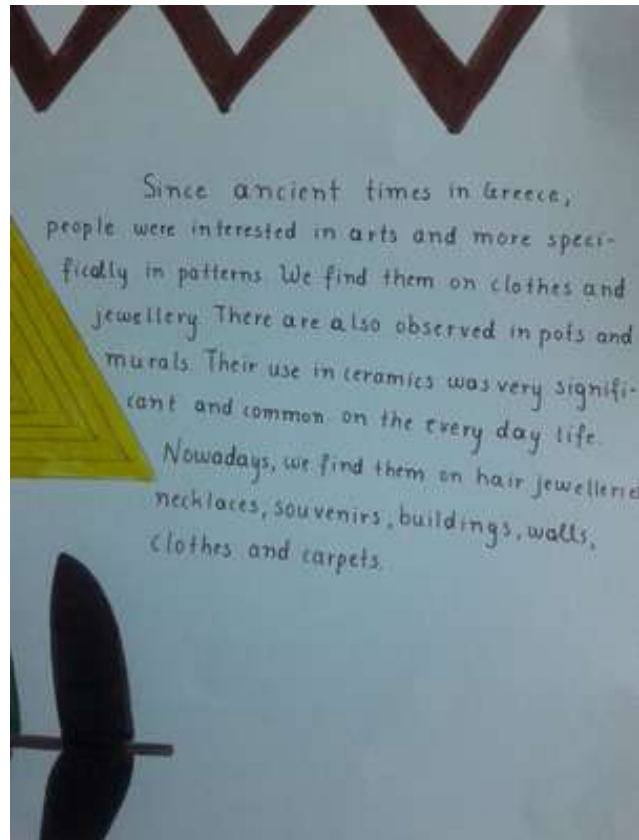 Since ancient times in Greece,
people were interested in arts and more speci-
fically in patterns. We find them on clothes and
jewellery. There are also observed in pots and
murals. Their use in ceramics was very signifi-
cant and common on the every day life.
Nowadays, we find them on hair jewelleries
necklaces, souvenirs, buildings, walls,
clothes and carpets.